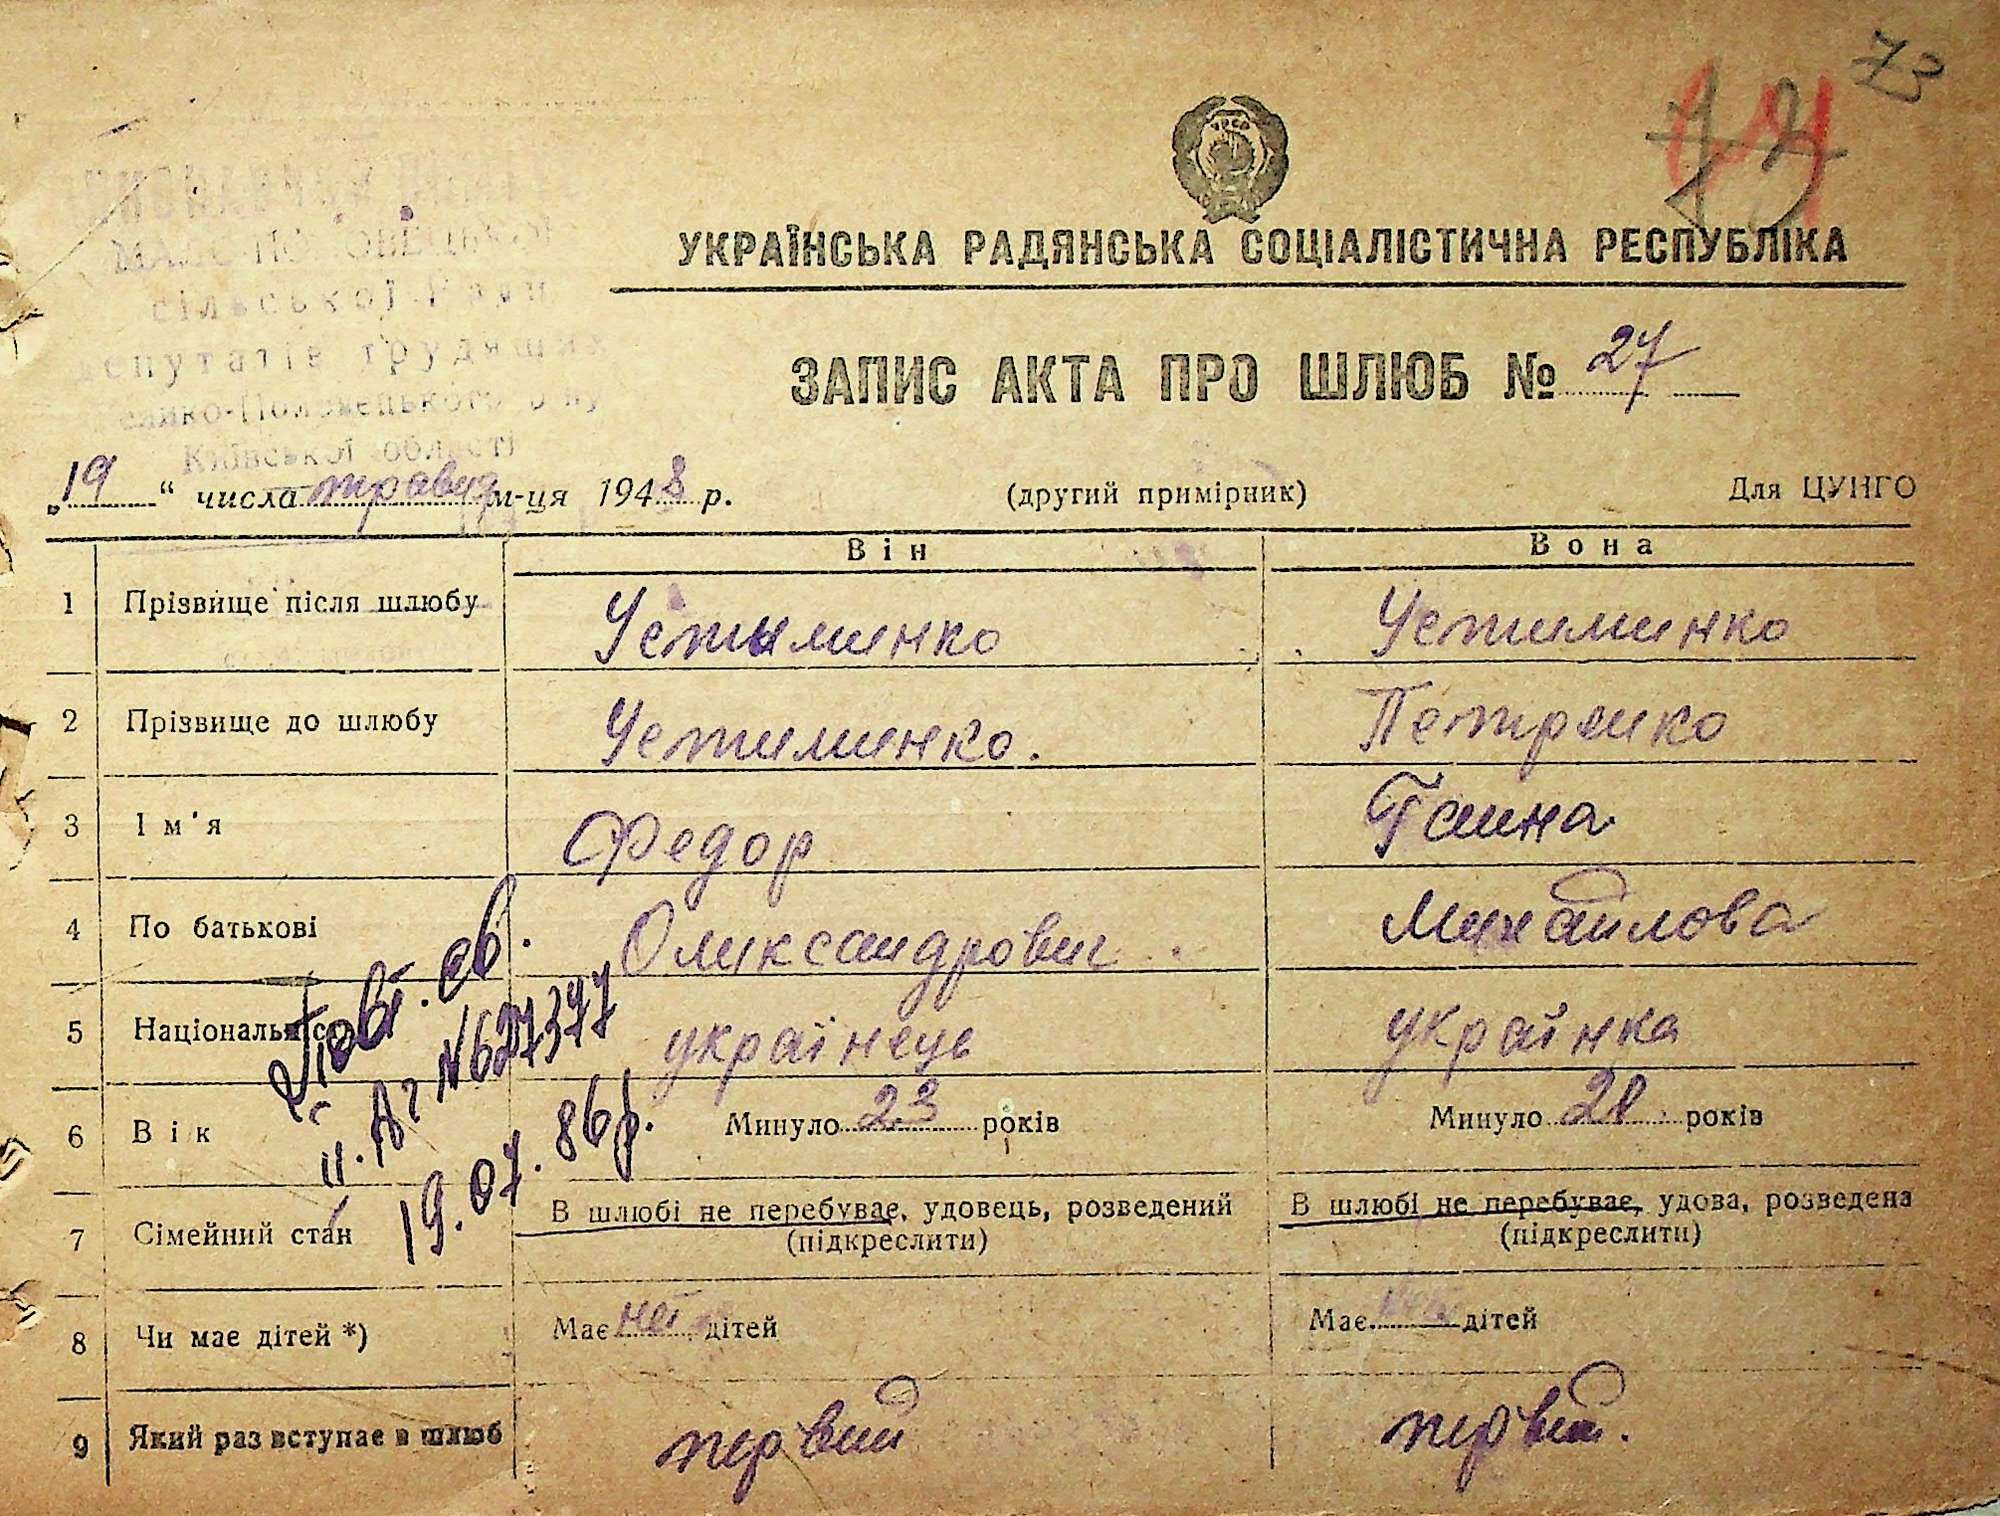 73
УКРАЇНСЬКА РАДЯНСЬКА СОЦІАЛІСТИЧНА РЕСПУБЛІКА
сільської Ради
депутатів трудящих
Київської області
ЗАПИС АКТА ПРО ШЛЮБ № 27
„19“ числа травня м-ця 1948 р. (другий примірник) Для ЦУНГО
Він Вона
1 Прізвище після шлюбу Устыминко Устиминко
2 Прізвище до шлюбу Устиминко. Петренко
3 Ім'я Федор Ганна
4 По батькові Оликсандрович Михайлова
5 Національність українець українка
6 Вік Минуло 23 років Минуло 28 років
7 Сімейний стан В шлюбі не перебуває, удовець, розведений В шлюбі не перебуває, удова, розведена
(підкреслити) (підкреслити)
8 Чи має дітей *) Має неї дітей Має дітей
9 Який раз вступає в шлюб первий первий.
Повт. св.
№627377
19.07.86р.